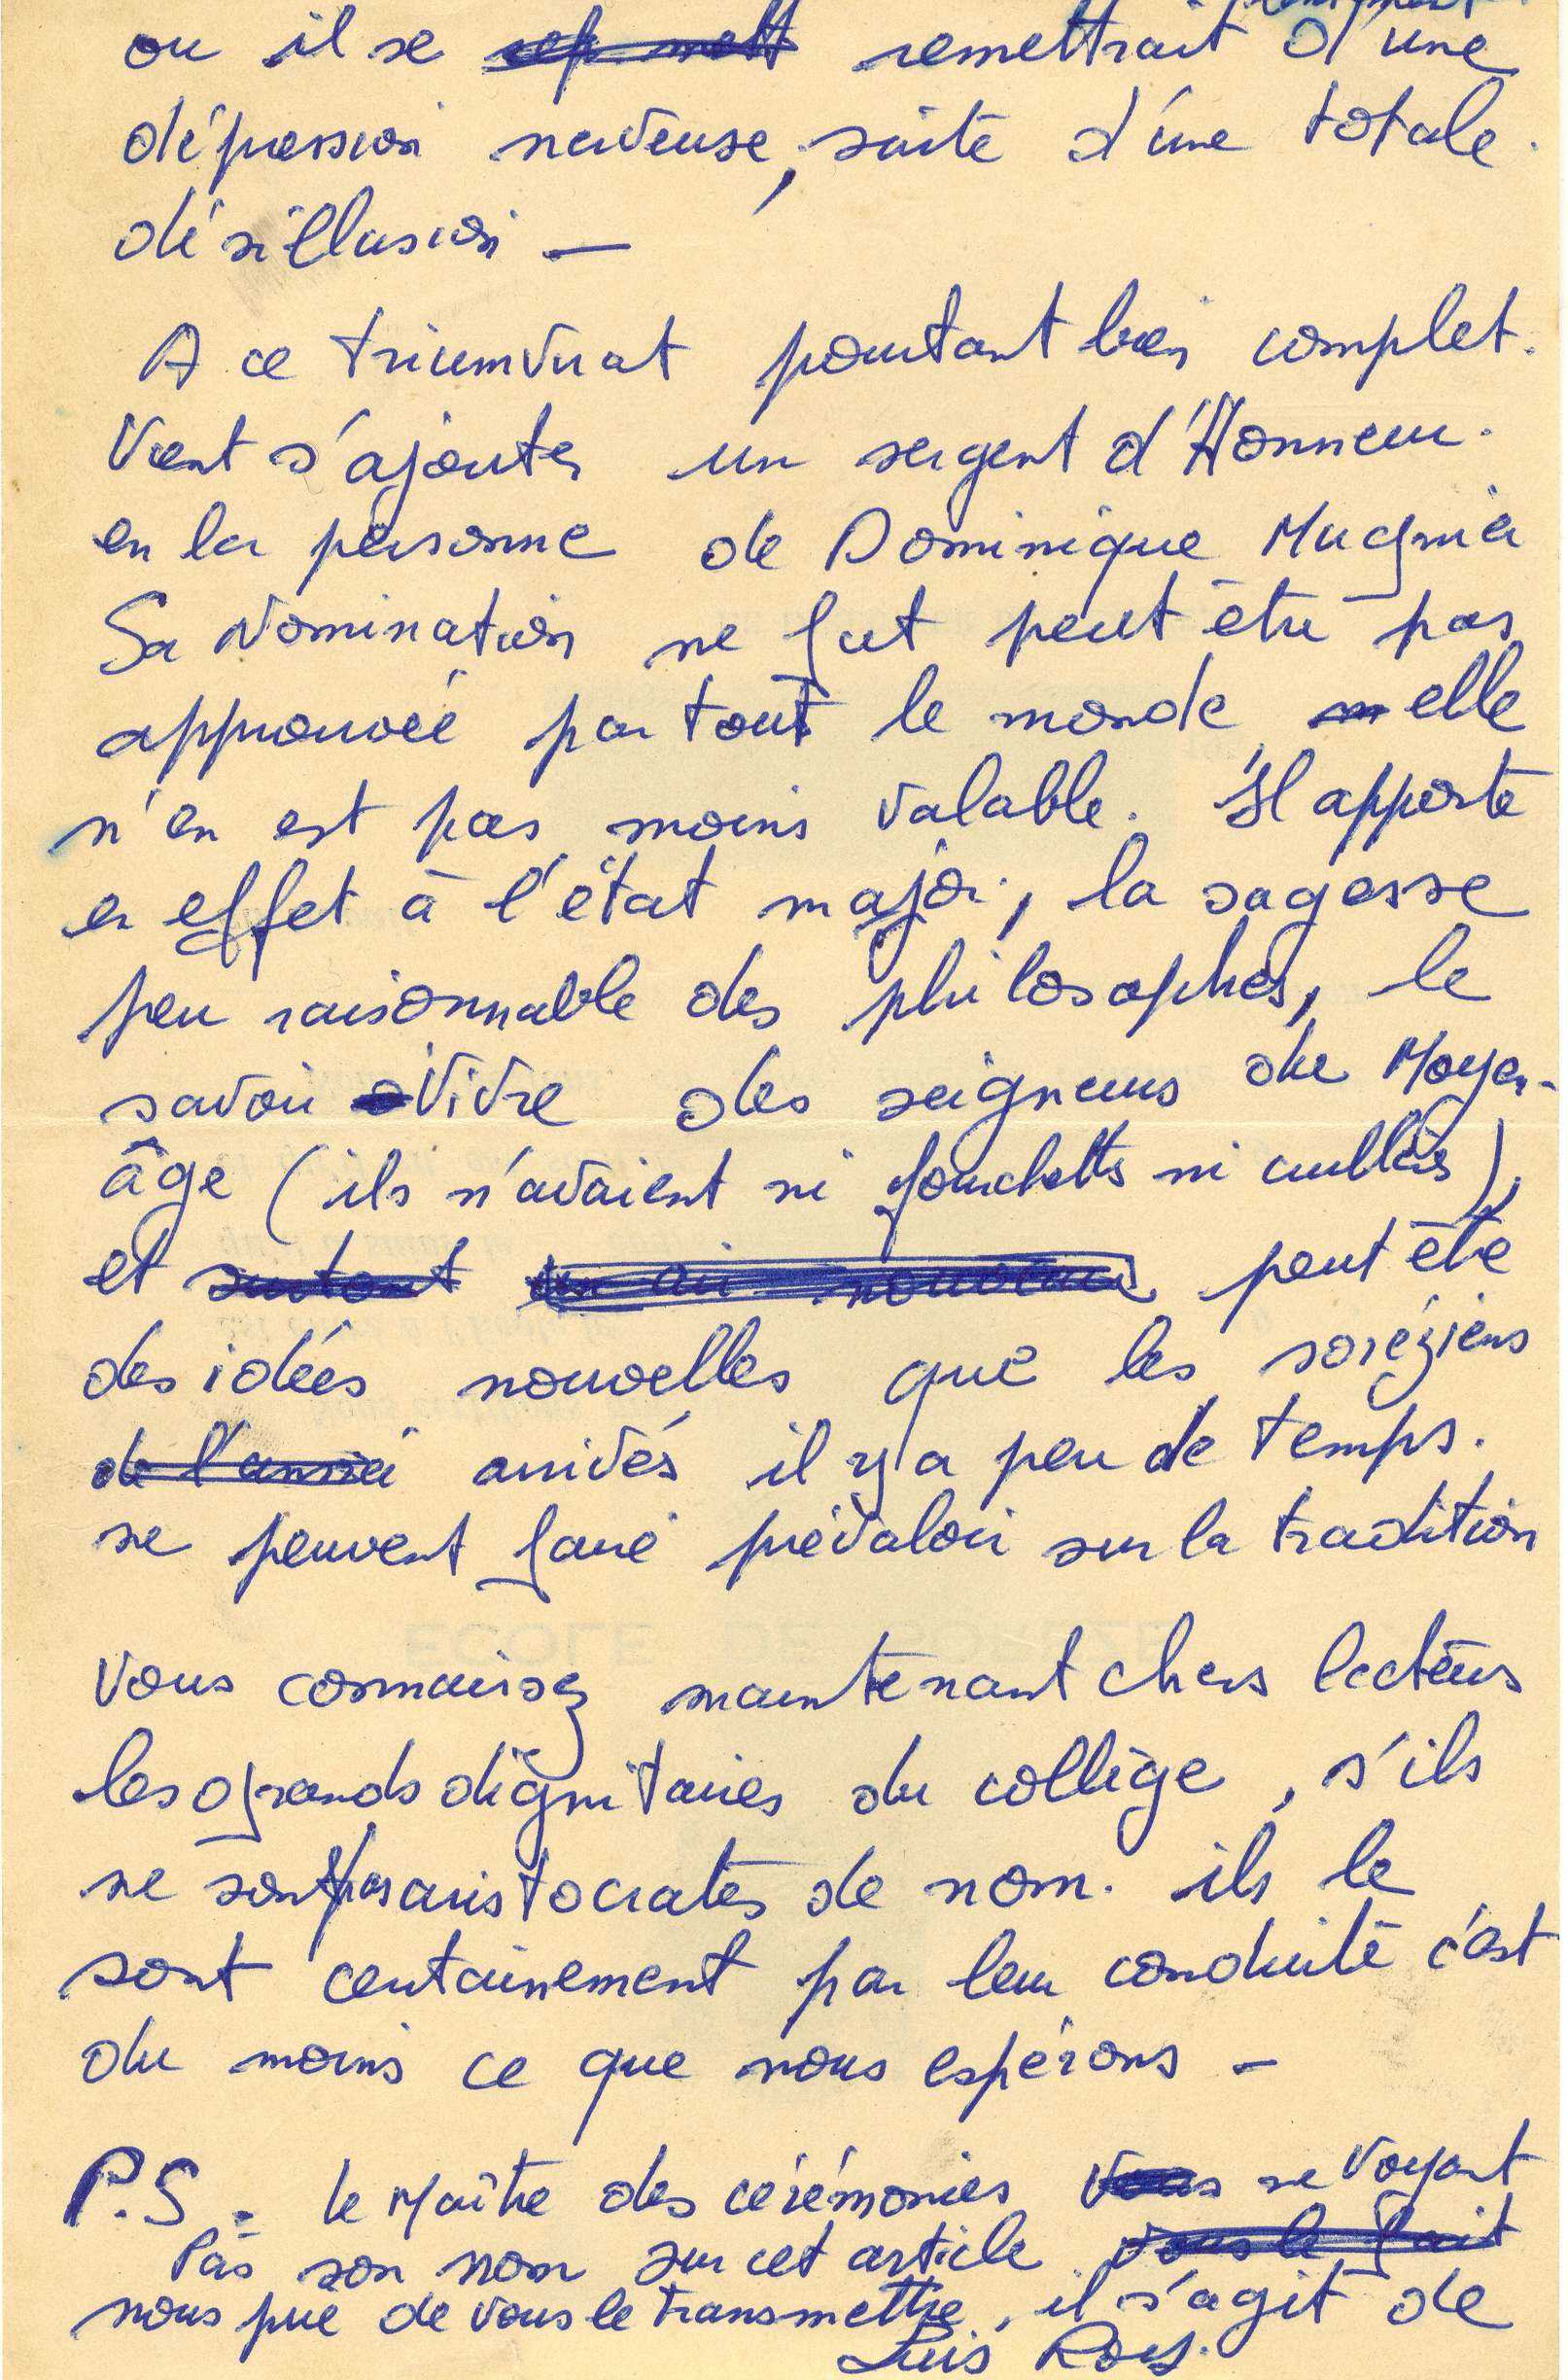 ou il se remettrait d'une
dépression nerveuse, suite d'une totale
désillusion —
A ce triumvirat pourtant bien complet.
Vient s'ajouter un sergent d'Honneur.
en la personne de Dominique Mugnier
Sa Nomination ne fut peut être pas
approuvée par tout le monde elle
n'en est pas moins valable. Il apporte
en effet à l'état major, la sagesse
peu raisonnable des philosophes, le
savoir Vivre des seigneurs du Moyen-
âge (ils n'avaient ni fourchettes ni cuillères),
et surtout un air nouveau peut être
des idées nouvelles que les soréziens
de l'année arrivés il y a peu de temps.
ne peuvent faire prévaloir sur la tradition
Vous connaissez maintenant chers lecteurs
les grands dignitaires du collège, s'ils
ne sont pas aristocrates de nom. ils le
sont certainement par leur conduite c'est
du moins ce que nous espérons —
P.S. le Maître des cérémonies vous ne voyant
Pas son nom sur cet article vous le fait
nous prie de vous le transmettre, il s'agit de
Luis